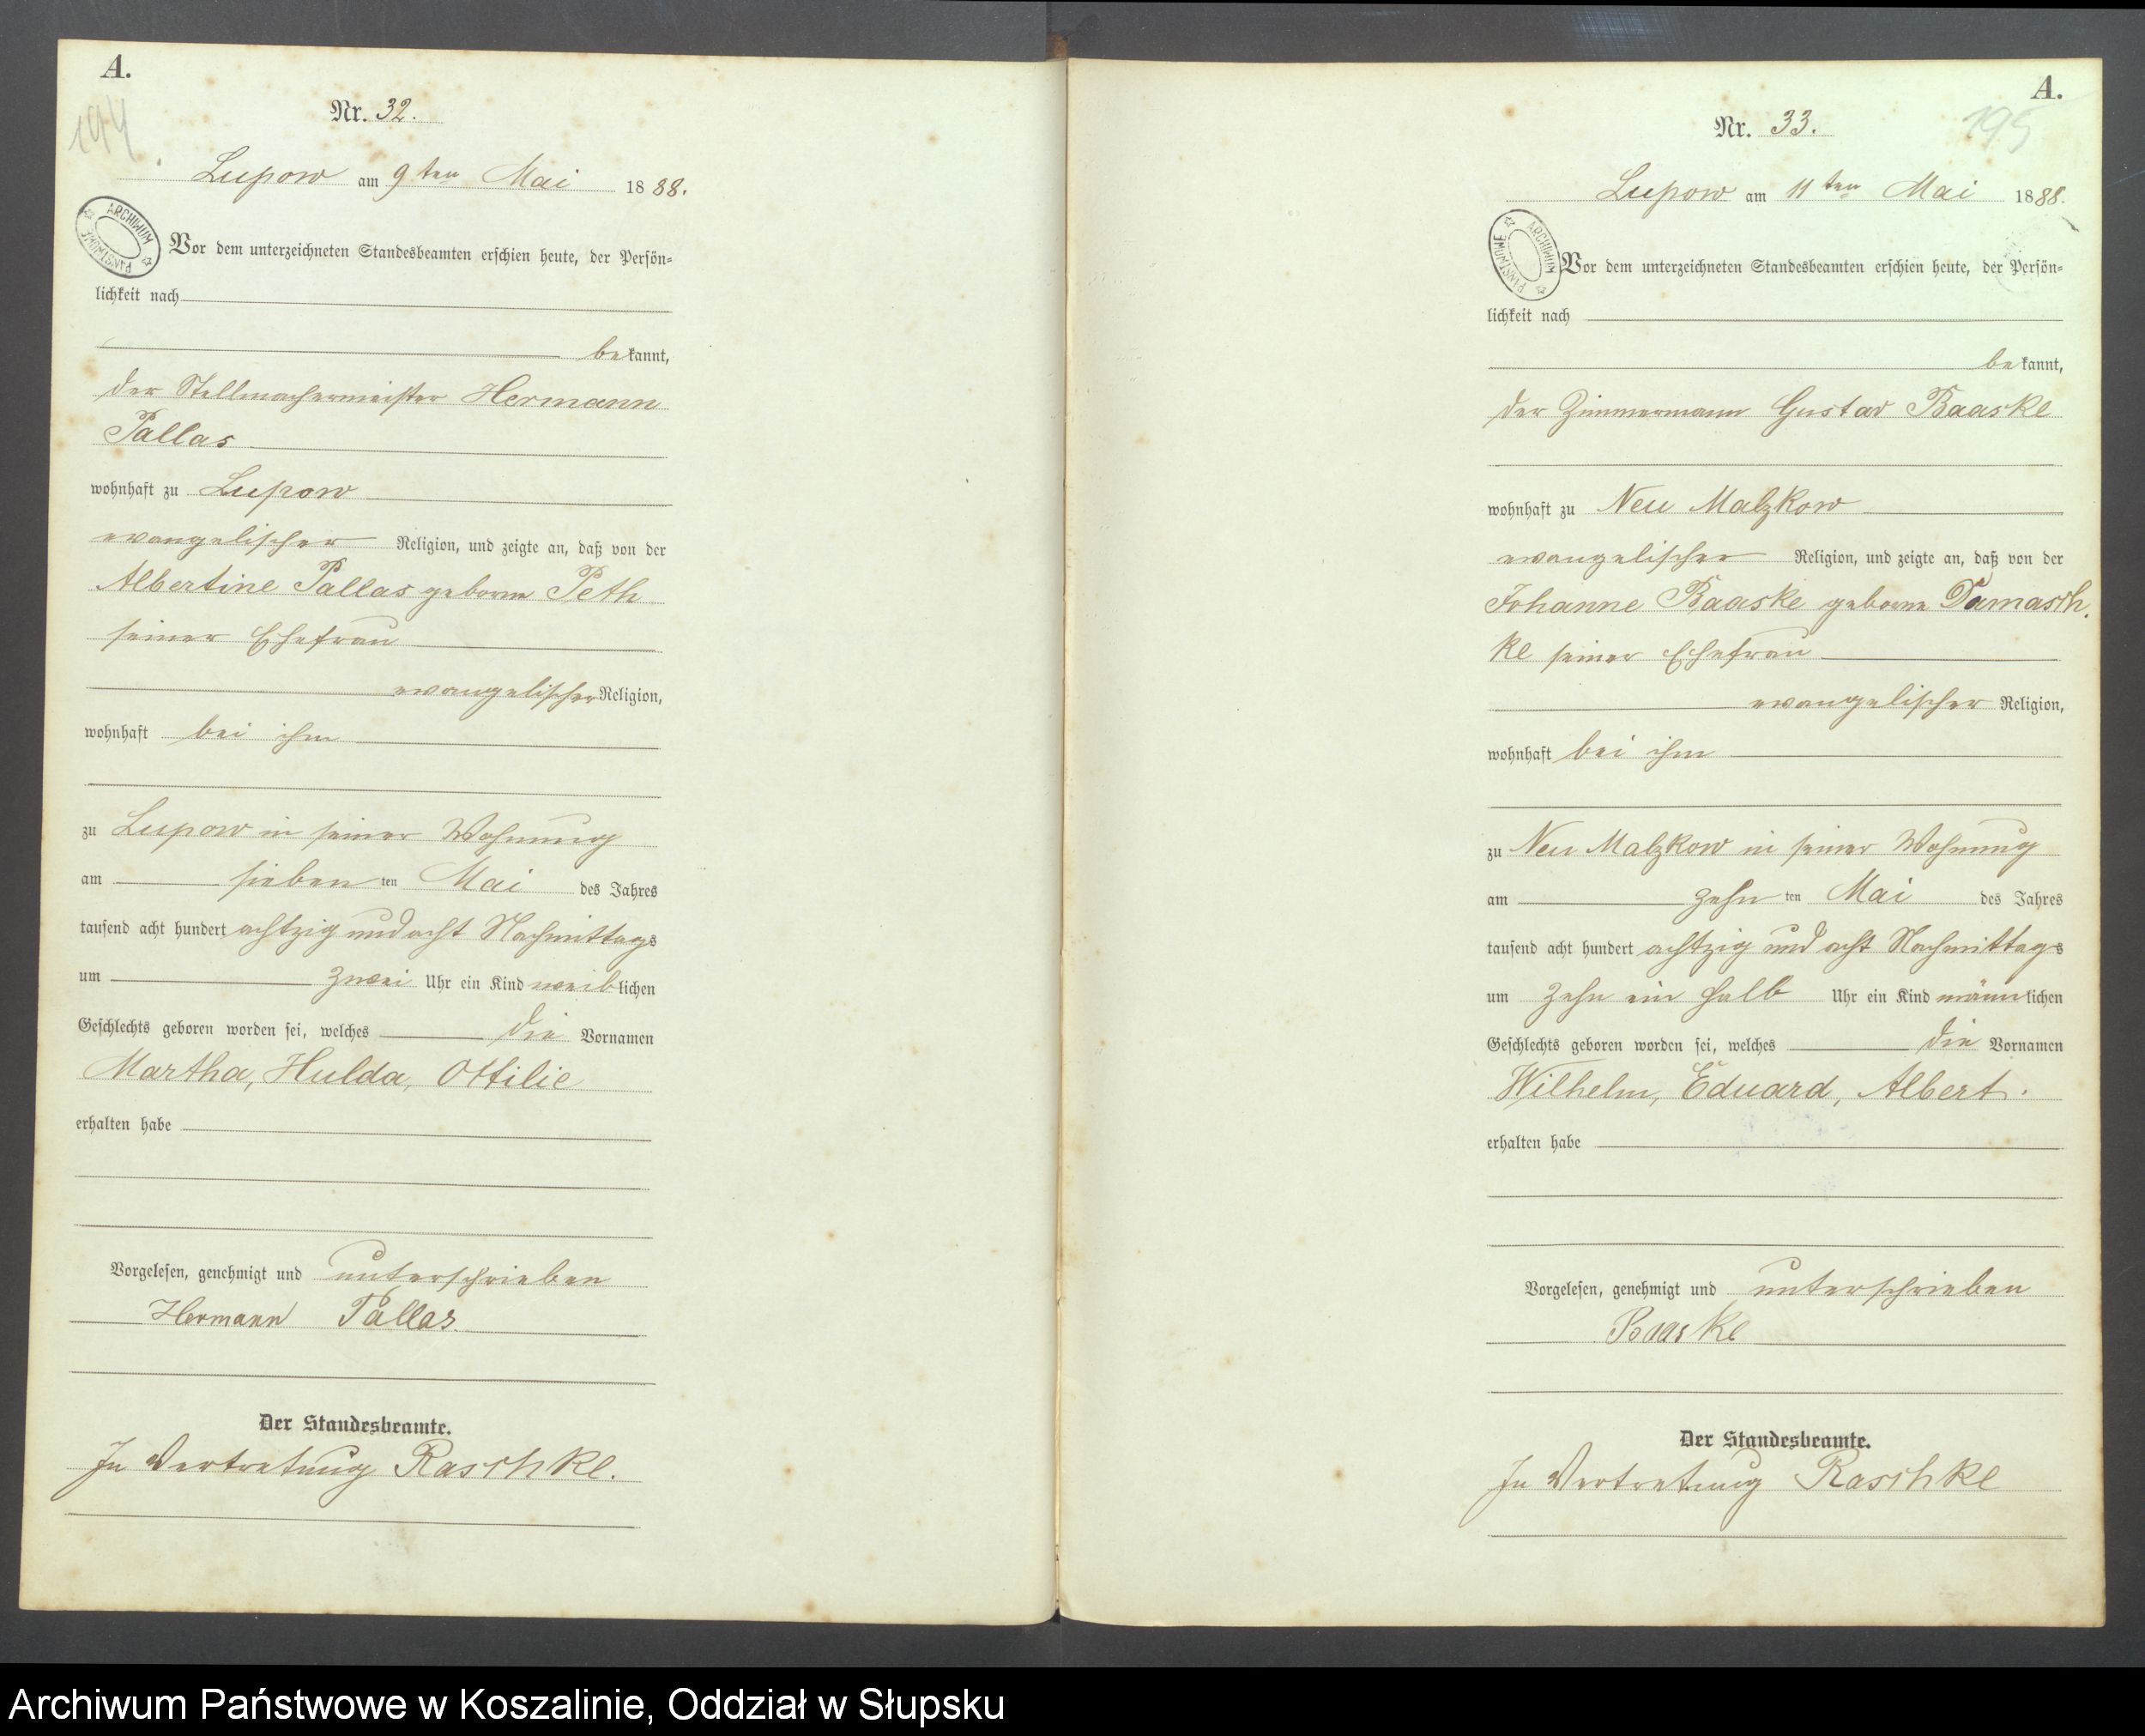 A.
194
Nr. 32.
Lupow am 9ten Mai 1888.
ARCHIWUM PAŃSTWOWE
Vor dem unterzeichneten Standesbeamten erschien heute, der Persön=
lichkeit nach
bekannt,
der Stellmachermeister Hermann
Pallas
wohnhaft zu Lupow
evangelischer Religion, und zeigte an, daß von der
Albertine Pallas geborne Peth
seiner Ehefrau
evangelischer Religion,
wohnhaft bei ihm
zu Lupow in seiner Wohnung
am sieben ten Mai des Jahres
tausend acht hundert achtzig und acht Nachmittags
um zwei Uhr ein Kind weiblichen
Geschlechts geboren worden sei, welches die Vornamen
Martha, Hulda, Ottilie
erhalten habe
Vorgelesen, genehmigt und unterschrieben
Hermann Pallas
Der Standesbeamte.
In Vertretung Raschke.
A.
195
Nr. 33.
Lupow am 11ten Mai 1888.
ARCHIWUM PAŃSTWOWE
Vor dem unterzeichneten Standesbeamten erschien heute, der Persön=
lichkeit nach
bekannt,
der Zimmermann Gustav Baaske
wohnhaft zu Neu Malzkow
evangelischer Religion, und zeigte an, daß von der
Johanne Baaske geborne Damasch.
ke seiner Ehefrau
evangelischer Religion,
wohnhaft bei ihm
zu Neu Malzkow in seiner Wohnung
am zehn ten Mai des Jahres
tausend acht hundert achtzig und acht Nachmittags
um zehn ein halb Uhr ein Kind männlichen
Geschlechts geboren worden sei, welches die Vornamen
Wilhelm, Eduard, Albert.
erhalten habe
Vorgelesen, genehmigt und unterschrieben
Baaske
Der Standesbeamte.
In Vertretung Raschke
Archiwum Państwowe w Koszalinie, Oddział w Słupsku